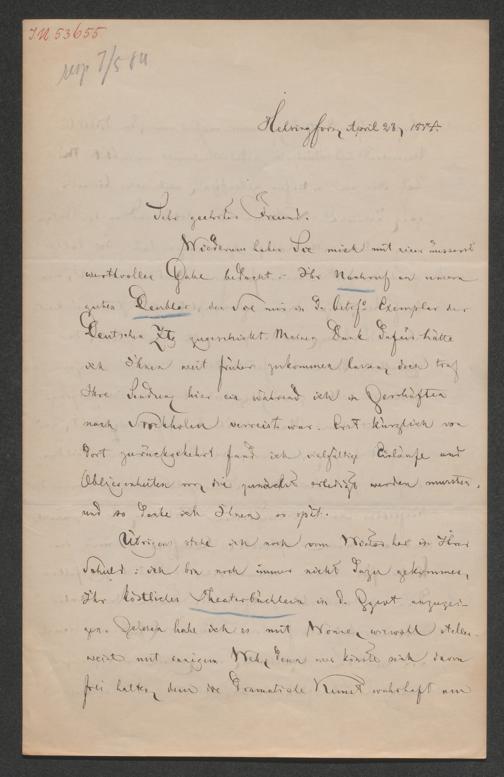 I.N 53655
7/5 84
Helsingfors, April 28, 1884.
Sehr geehrter Freund.
Wiederum haben Sie mich mit einer äusserst
werthvollen Gabe bedacht: Ihr Nachruf an unsern
guten den Sie mir in d. betrf. Exemplar der
Deutschen Ztg zugeschickt. Meinen Dank dafür hätte
ich Ihnen weit früher zukommen lassen, doch traf
Ihre Sendung hier ein während ich in Geschäften
nach Stockholm verreist war. Erst kürzlich von
dort zurückgekehrt fand ich vielfältige Einläufe und
Obliegenheiten vor, die zunächst erledigt werden mussten,
und so danke ich Ihnen so spät.
Übrigens stehe ich noch vom Winter her in Ihrer
Schuld: ich bin noch immer nicht dazu gekommen,
Ihr köstliches Theaterbüchlein in d. Ggwt anzuzei-
gen. Gelesen habe ich es mit Wonne, wiewohl stellen-
weise mit einigem Weh, denn wer könnte sich davon
frei halten, dem die dramatische Kunst wahrhaft am